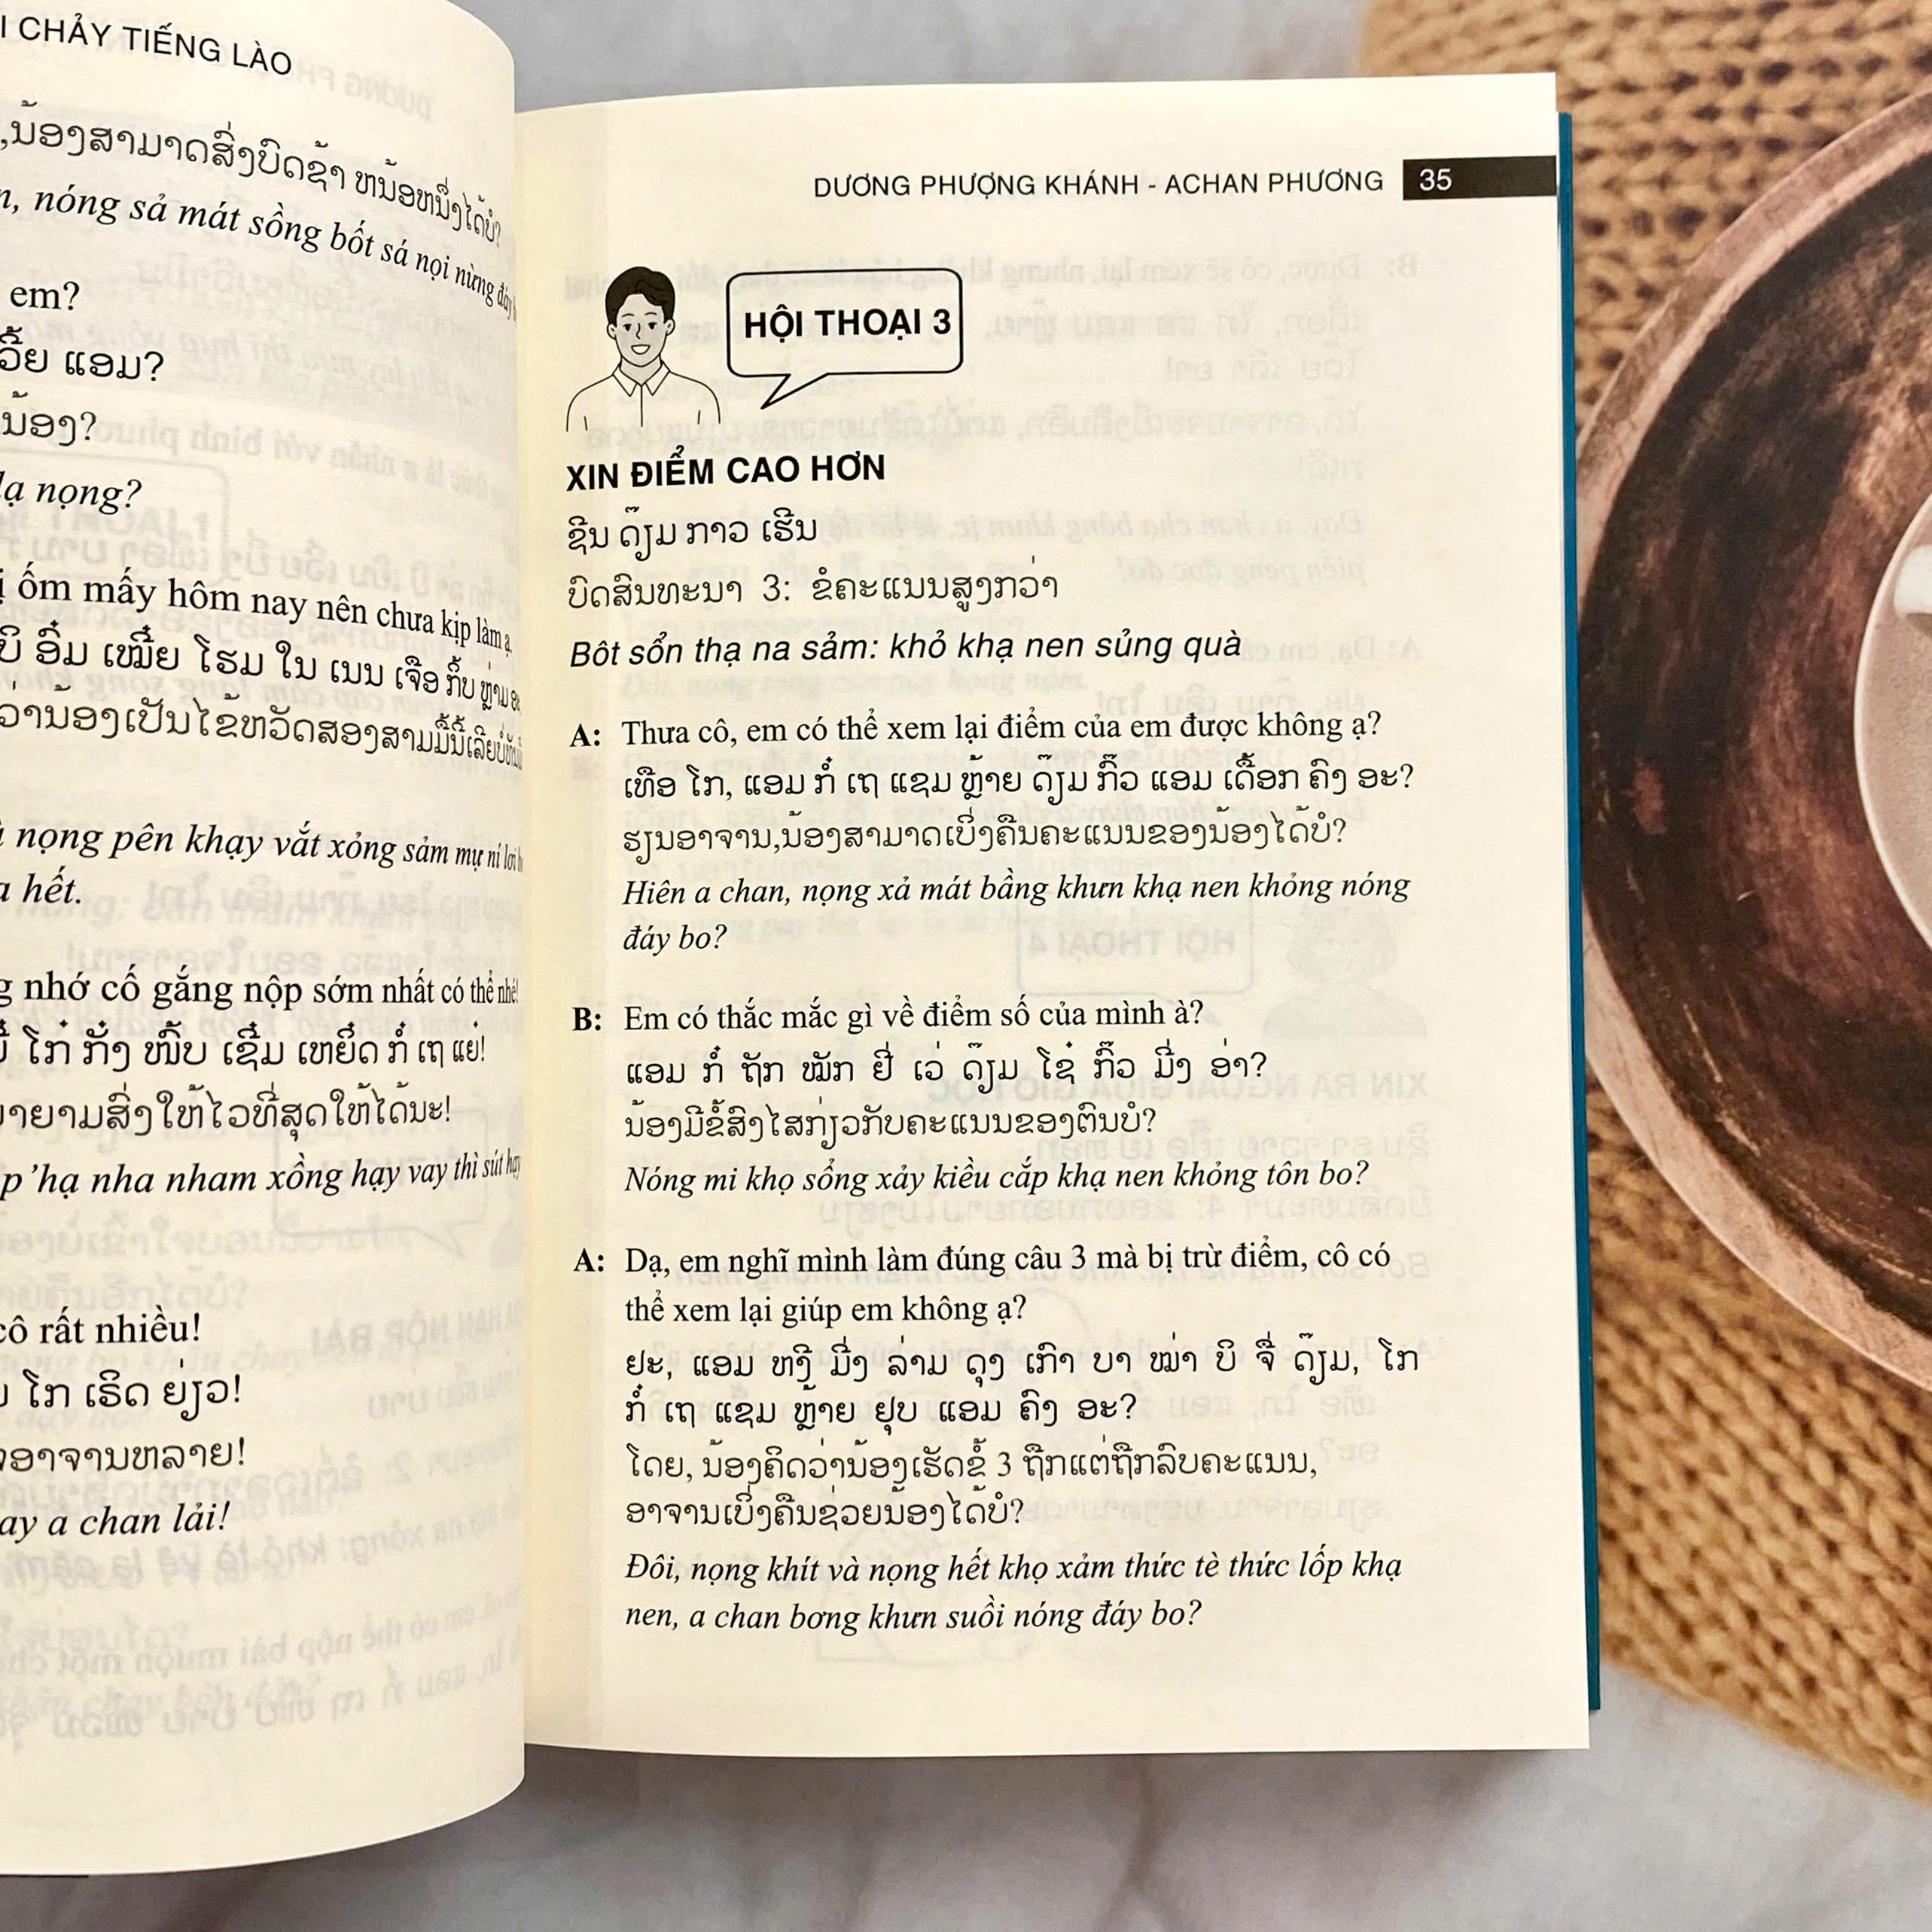 I CHẢY TIẾNG LÀO
,ນ້ອງສາມາດສົ່ງບົດຊ້າ ຫນ້ອຫນຶ່ງໄດ້ບໍ?
nóng sả mát sồng bốt sá nọi nừng đáy
em?
ແອມ?
ນ້ອງ?
nọng?
ốm mấy hôm nay nên chưa kịp làm ạ.
ບິ ອົ໋ມ ເໝີ໋ຍ ໂຮມ ໃນ ເນນ ເຈືອ ກິ໊ບ ຫຼ່າມ
ວ່ານ້ອງເປັນໄຂ້ຫວັດສອງສາມມື້ນີ້ເລີຍບໍ່ທັນ
nọng pên khạy vắt xỏng sảm mự ní lơi
hết.
nhớ cố gắng nộp sớm nhất có thể nhé!
ໂກ໋ ກັ໋ງ ໜົ໊ບ ເຊີ໋ມ ເຫຍິ໋ດ ກໍ໋ ເຖ ແຍ່!
ຍາຍາມສົ່ງໃຫ້ໄວທີ່ສຸດໃຫ້ໄດ້ນະ!
p'hạ nha nham xồng hạy vay thì sút hạy
cô rất nhiều!
ໂກ ເຣິດ ຍ່ຽວ!
ອາຈານຫລາຍ!
a chan lải!
DƯƠNG PHƯỢNG KHÁNH - ACHAN PHƯƠNG 35
HỘI THOẠI 3
XIN ĐIỂM CAO HƠN
ຊີນ ດ໊ຽມ ກາວ ເຮີນ
ບົດສົນທະນາ 3: ຂໍຄະແນນສູງກວ່າ
Bôt sổn thạ na sảm: khỏ khạ nen sủng quà
A: Thưa cô, em có thể xem lại điểm của em được không ạ?
ເທືອ ໂກ, ແອມ ກໍ໋ ເຖ ແຊມ ຫຼ້າຍ ດ໊ຽມ ກົ໊ວ ແອມ ເດື້ອກ ຄົງ ອະ?
ຮຽນອາຈານ,ນ້ອງສາມາດເບິ່ງຄືນຄະແນນຂອງນ້ອງໄດ້ບໍ?
Hiên a chan, nọng xả mát bầng khưn khạ nen khỏng nóng
đáy bo?
B: Em có thắc mắc gì về điểm số của mình à?
ແອມ ກໍ໋ ຖັກ ໝັກ ຢີ່ ເວ່ ດ໊ຽມ ໂຊ໋ ກົ໊ວ ມີ່ງ ອ່າ?
ນ້ອງມີຂໍ້ສົງໄສກ່ຽວກັບຄະແນນຂອງຕົນບໍ?
Nóng mi khọ sổng xảy kiều cắp khạ nen khỏng tôn bo?
A: Dạ, em nghĩ mình làm đúng câu 3 mà bị trừ điểm, cô có
thể xem lại giúp em không ạ?
ຢະ, ແອມ ຫງີ ມີ່ງ ລ່າມ ດຸງ ເກົາ ບາ ໝ່າ ບິ ຈື່ ດ໊ຽມ, ໂກ
ກໍ໋ ເຖ ແຊມ ຫຼ້າຍ ຢຸບ ແອມ ຄົງ ອະ?
ໂດຍ, ນ້ອງຄິດວ່ານ້ອງເຮັດຂໍ້ 3 ຖືກແຕ່ຖືກລົບຄະແນນ,
ອາຈານເບິ່ງຄືນຊ່ວຍນ້ອງໄດ້ບໍ?
Đôi, nọng khít và nọng hết khọ xảm thức tè thức lốp khạ
nen, a chan bơng khưn suồi nóng đáy bo?